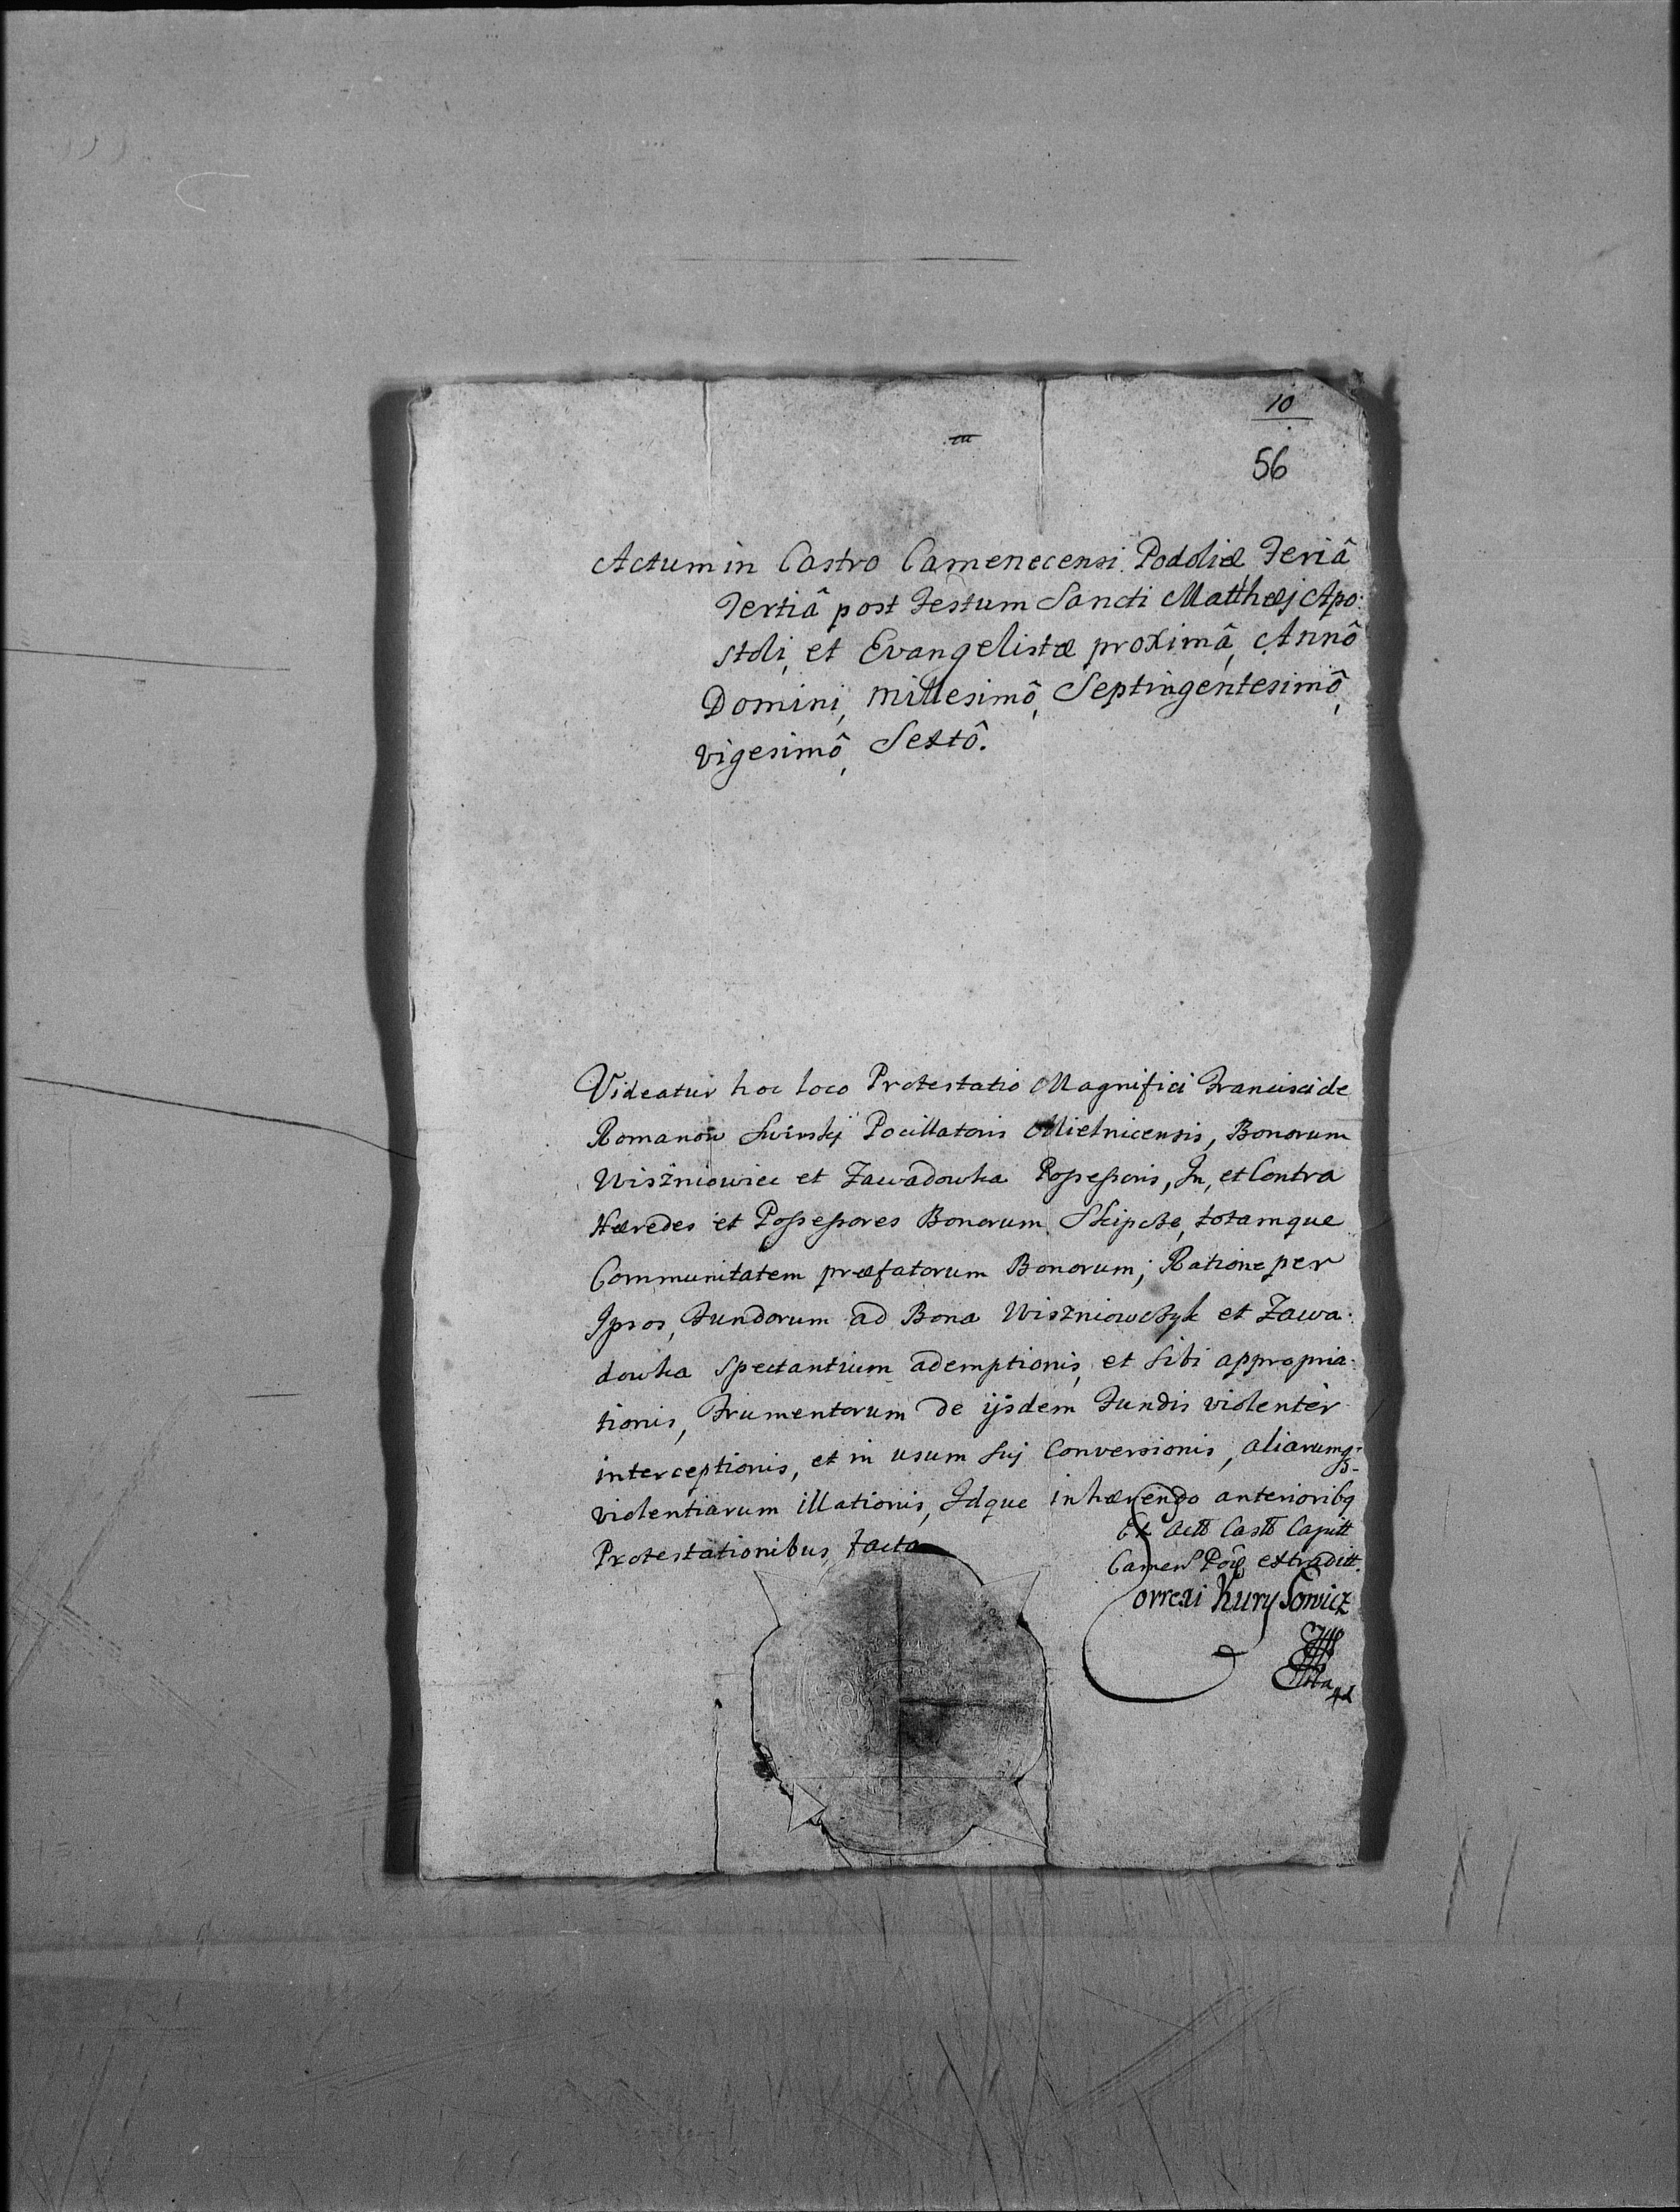 10
56
Actum in Castro Camenecensi Podoliæ Feriâ
Tertiâ post Festum Sancti Matthæj Apo:
stoli, et Evangelistæ proximâ, Annô
Domini, Millesimô, Septingentesimô,
vigesimô, Sextô.
Videatur hoc loco Protestatio Magnifici Francisci de
Romanow Swirskj Pocillatoris Mielnicensis, Bonorum
Wiszniowiec et Zawadowka Possessoris, In, et Contra
Hæredes et Possessores Bonorum totamque
Communitatem præfatorum Bonorum; Ratione per
Ipsos, Fundorum ad Bona Wiszniowczyk et Zawa:
dowka spectantium ademptionis, et sibi appropria:
tionis, Frumentorum de ijsdem Fundis violentèr
interceptionis, et in usum suj Conversionis, aliarumq;
violentiarum illationis, Idque inhærendo anterioribq
Protestationibus, facta
Ex Actis Castr Capitt
Camen Pod extraditt.
Correxi Kurylowicz